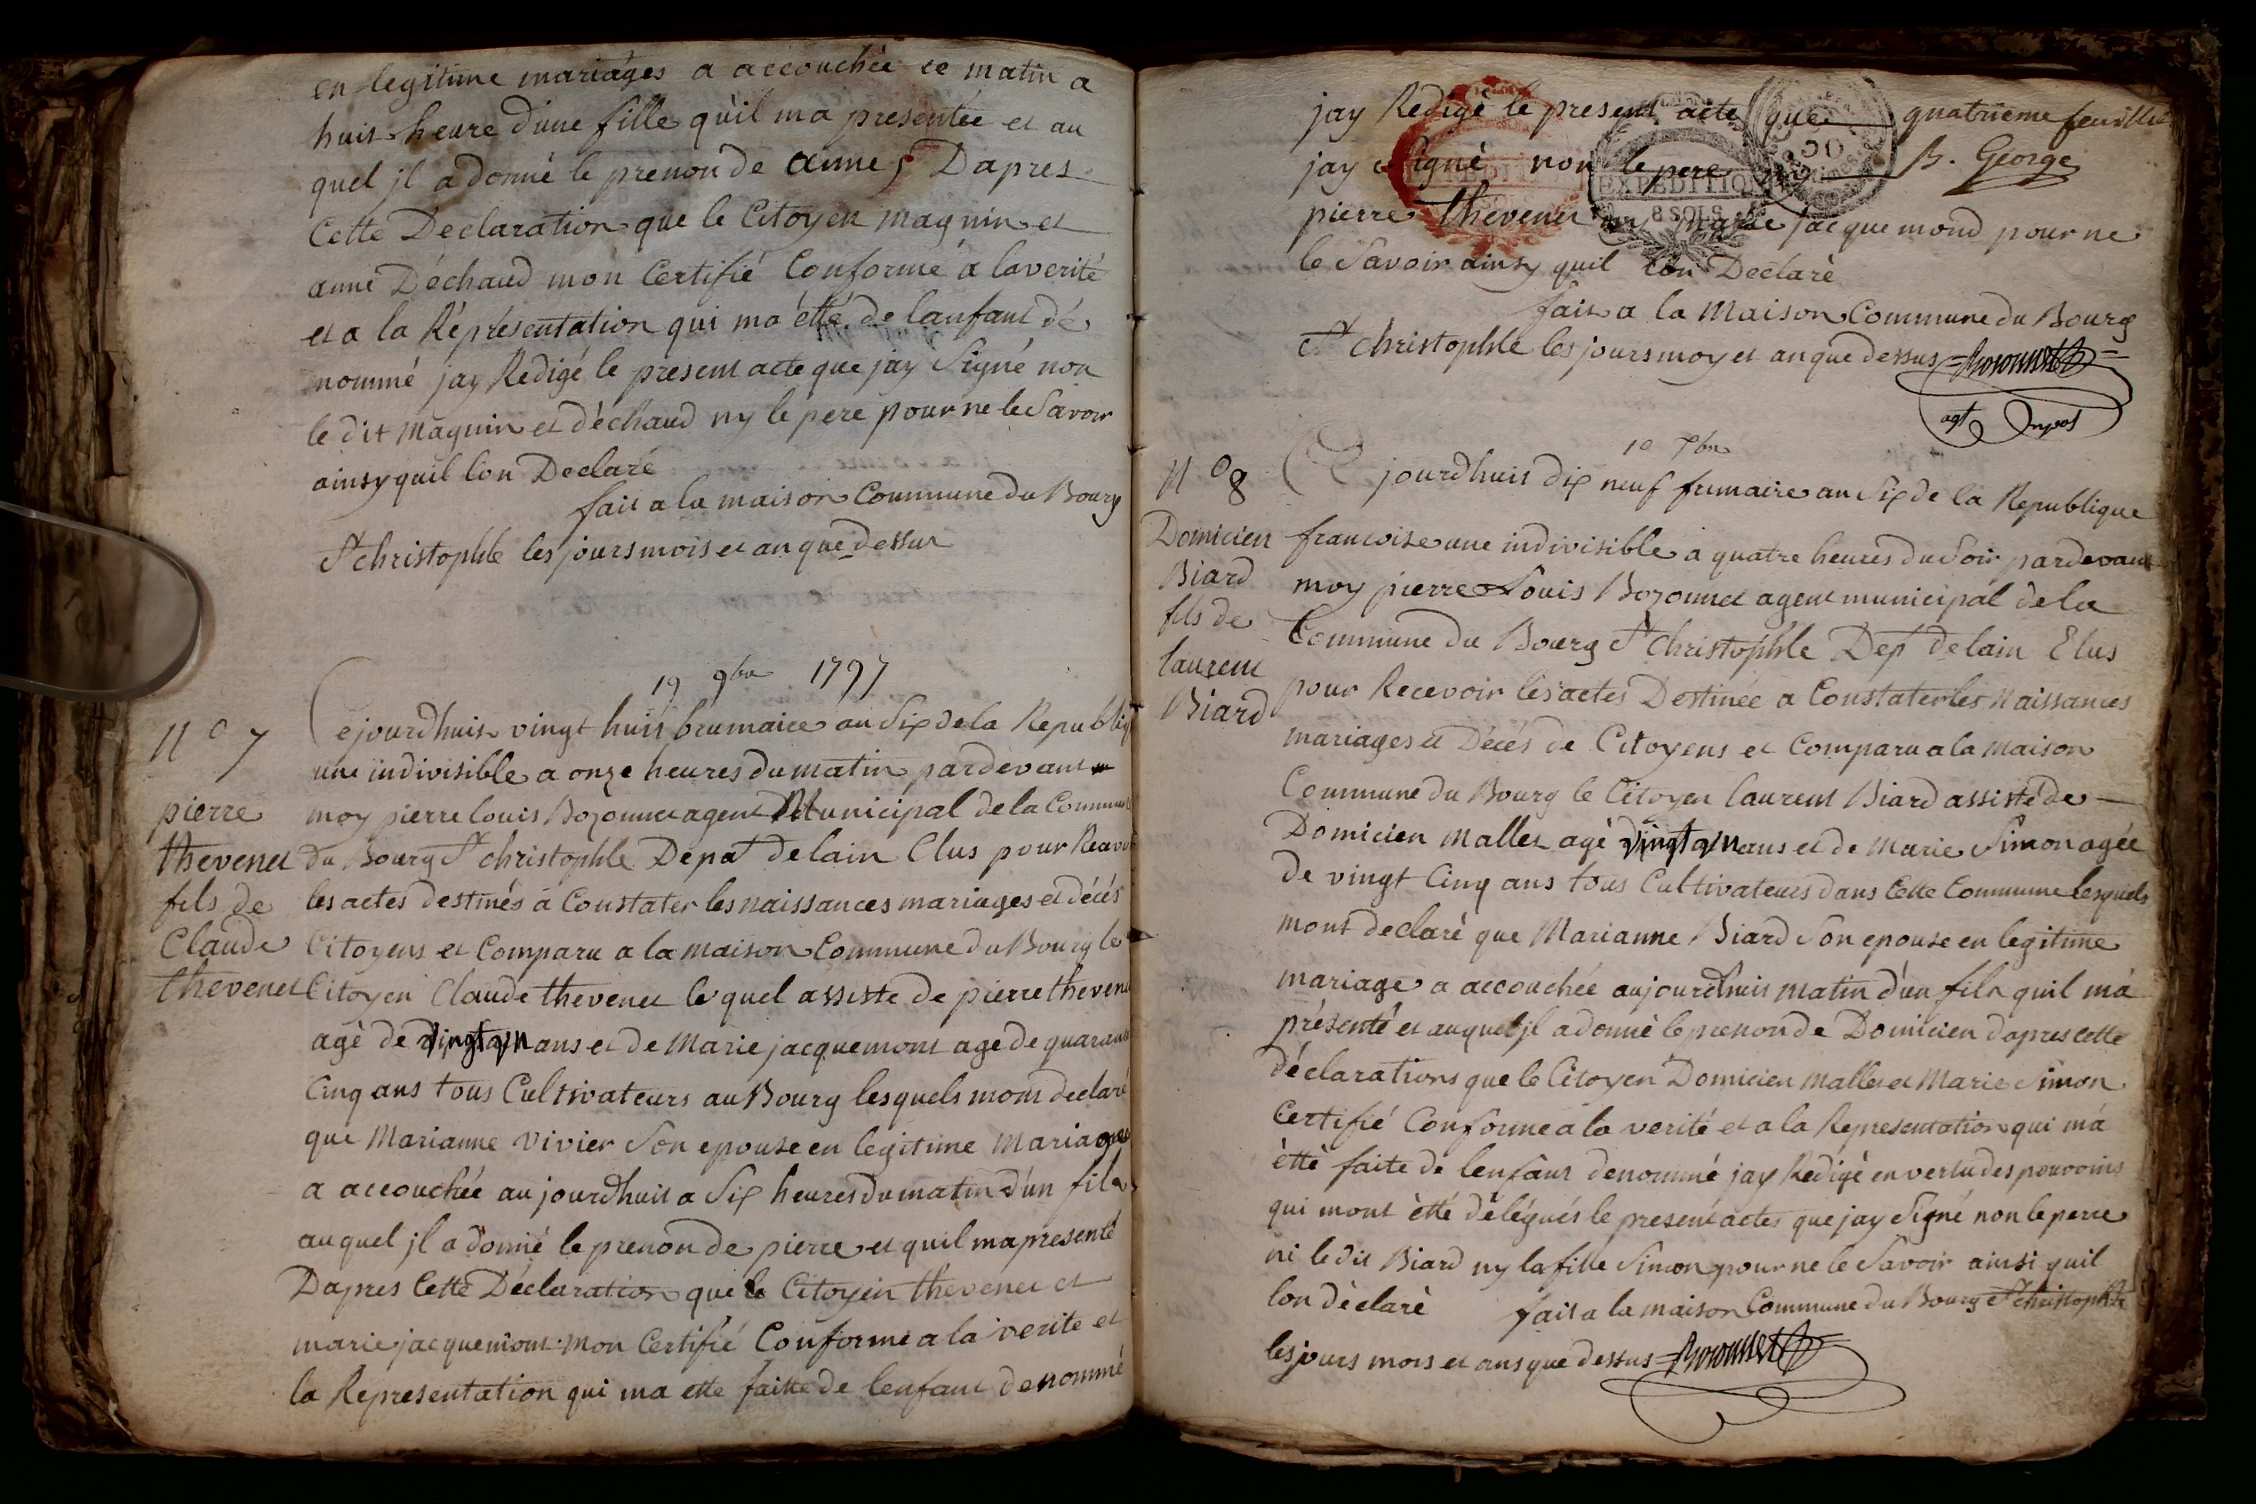 en legitime mariages a accouchée ce matin a
huit heure d'une fille qu'il ma presentée et au
quel jl a donné le prenon de anne, Dapres
Cette Declaration que le Citoyen magnin et
anne Déchaud mon Certifié Conforme a la verité
et a la Représentation qui ma étté de lanfant dé
nommé jay Redigé le present acte que jay Signé non
le dit magnin et déchaud ny le pere pour ne le Savoir
ainsy quil lon Declaré
fait a la maison Commune du Bourg
St christophle les jours mois et an que dessus
19 9bre 1797
N° 7
pierre
thevenet
fils de
Claude
thevenet
Cejourdhuit vingt huit brumaire an Six de la Republiq
une indivisible a onze heures du matin pardevant
moy pierre louis Bozonnet agent Municipal de la Commune
du Bourg St christophle Depat delain Elus pour Recevoir
les actes destinés a Constater les naissances mariages et décés
Citoyens et Comparu a la maison Commune du Bourg le
Citoyen Claude thevenet le quel assiste de pierre thevenet
agè de vingt un ans et de Marie jacquemont age de quarante
Cinq ans tous Cultivateurs au Bourg lesquels mont declaré
que Marianne vivier Son epouse en legitime Mariage
a accouchée aujourdhuit a Six heures du matin d'un fils
auquel jl a donné le prenon de pierre et quil ma presenté
Dapres Cette Déclaration que le Citoyen thevenet et
marie jacquemont mon Certifié Conforme a la verite et
la Representation qui ma ette faitte de lenfant denommé
jay Redigé le present acte que quatrieme feuillet
jay Signé non le pere ny B. George
pierre thevenet ny marie jacquemond pour ne
le Savoir ainsy quil lon Declarè
EXPEDITION
8 SOLS
fait a la Maison Commune du Bourg
St christophle les jours moy et an que dessus = Bozonnet
agt
10 xbre
N° 8
Domicien
Biard
fils de
laurent
Biard
Cejourdhuit dix neuf frimaire an Six de la Republique
francoise une indivisible a quatre heures du Soir pardevant
moy pierre Louis Bozonnet agent municipal de la
Commune du Bourg St Christophle Dept delain Elus
pour Recevoir les actes Destinée a Constater les Naissances
mariages et Décés de Citoyens et Comparu a la maison
Commune du Bourg le Citoyen laurent Biard assiste de
Domicien mallet agè vingt un ans et de Marie Simon agée
de vingt Cinq ans tous Cultivateurs dans Cette Commune lesquels
mont declarè que Marianne Biard Son epouse en legitime
mariage a accouchée aujourdhuis matin d'un fils quil má
présenté et auquel jl a donné le prenon de Domicien dapres cette
déclarations que le Citoyen Domicien mallet et Marie Simon
Certifié Conforme a la verité et a la Representation qui má
ètté faite de lenfant denommé jay Redigé en vertu des pouvoirs
qui mont ètté délégués le present actes que jay Signé non le perre
ni le dit Biard ny la fille Simon pour ne le Savoir ainsi quil
lon dèclarè fait a la maison Commune du Bourg St christophle
les jours mois et ans que dessus = Bozonnet